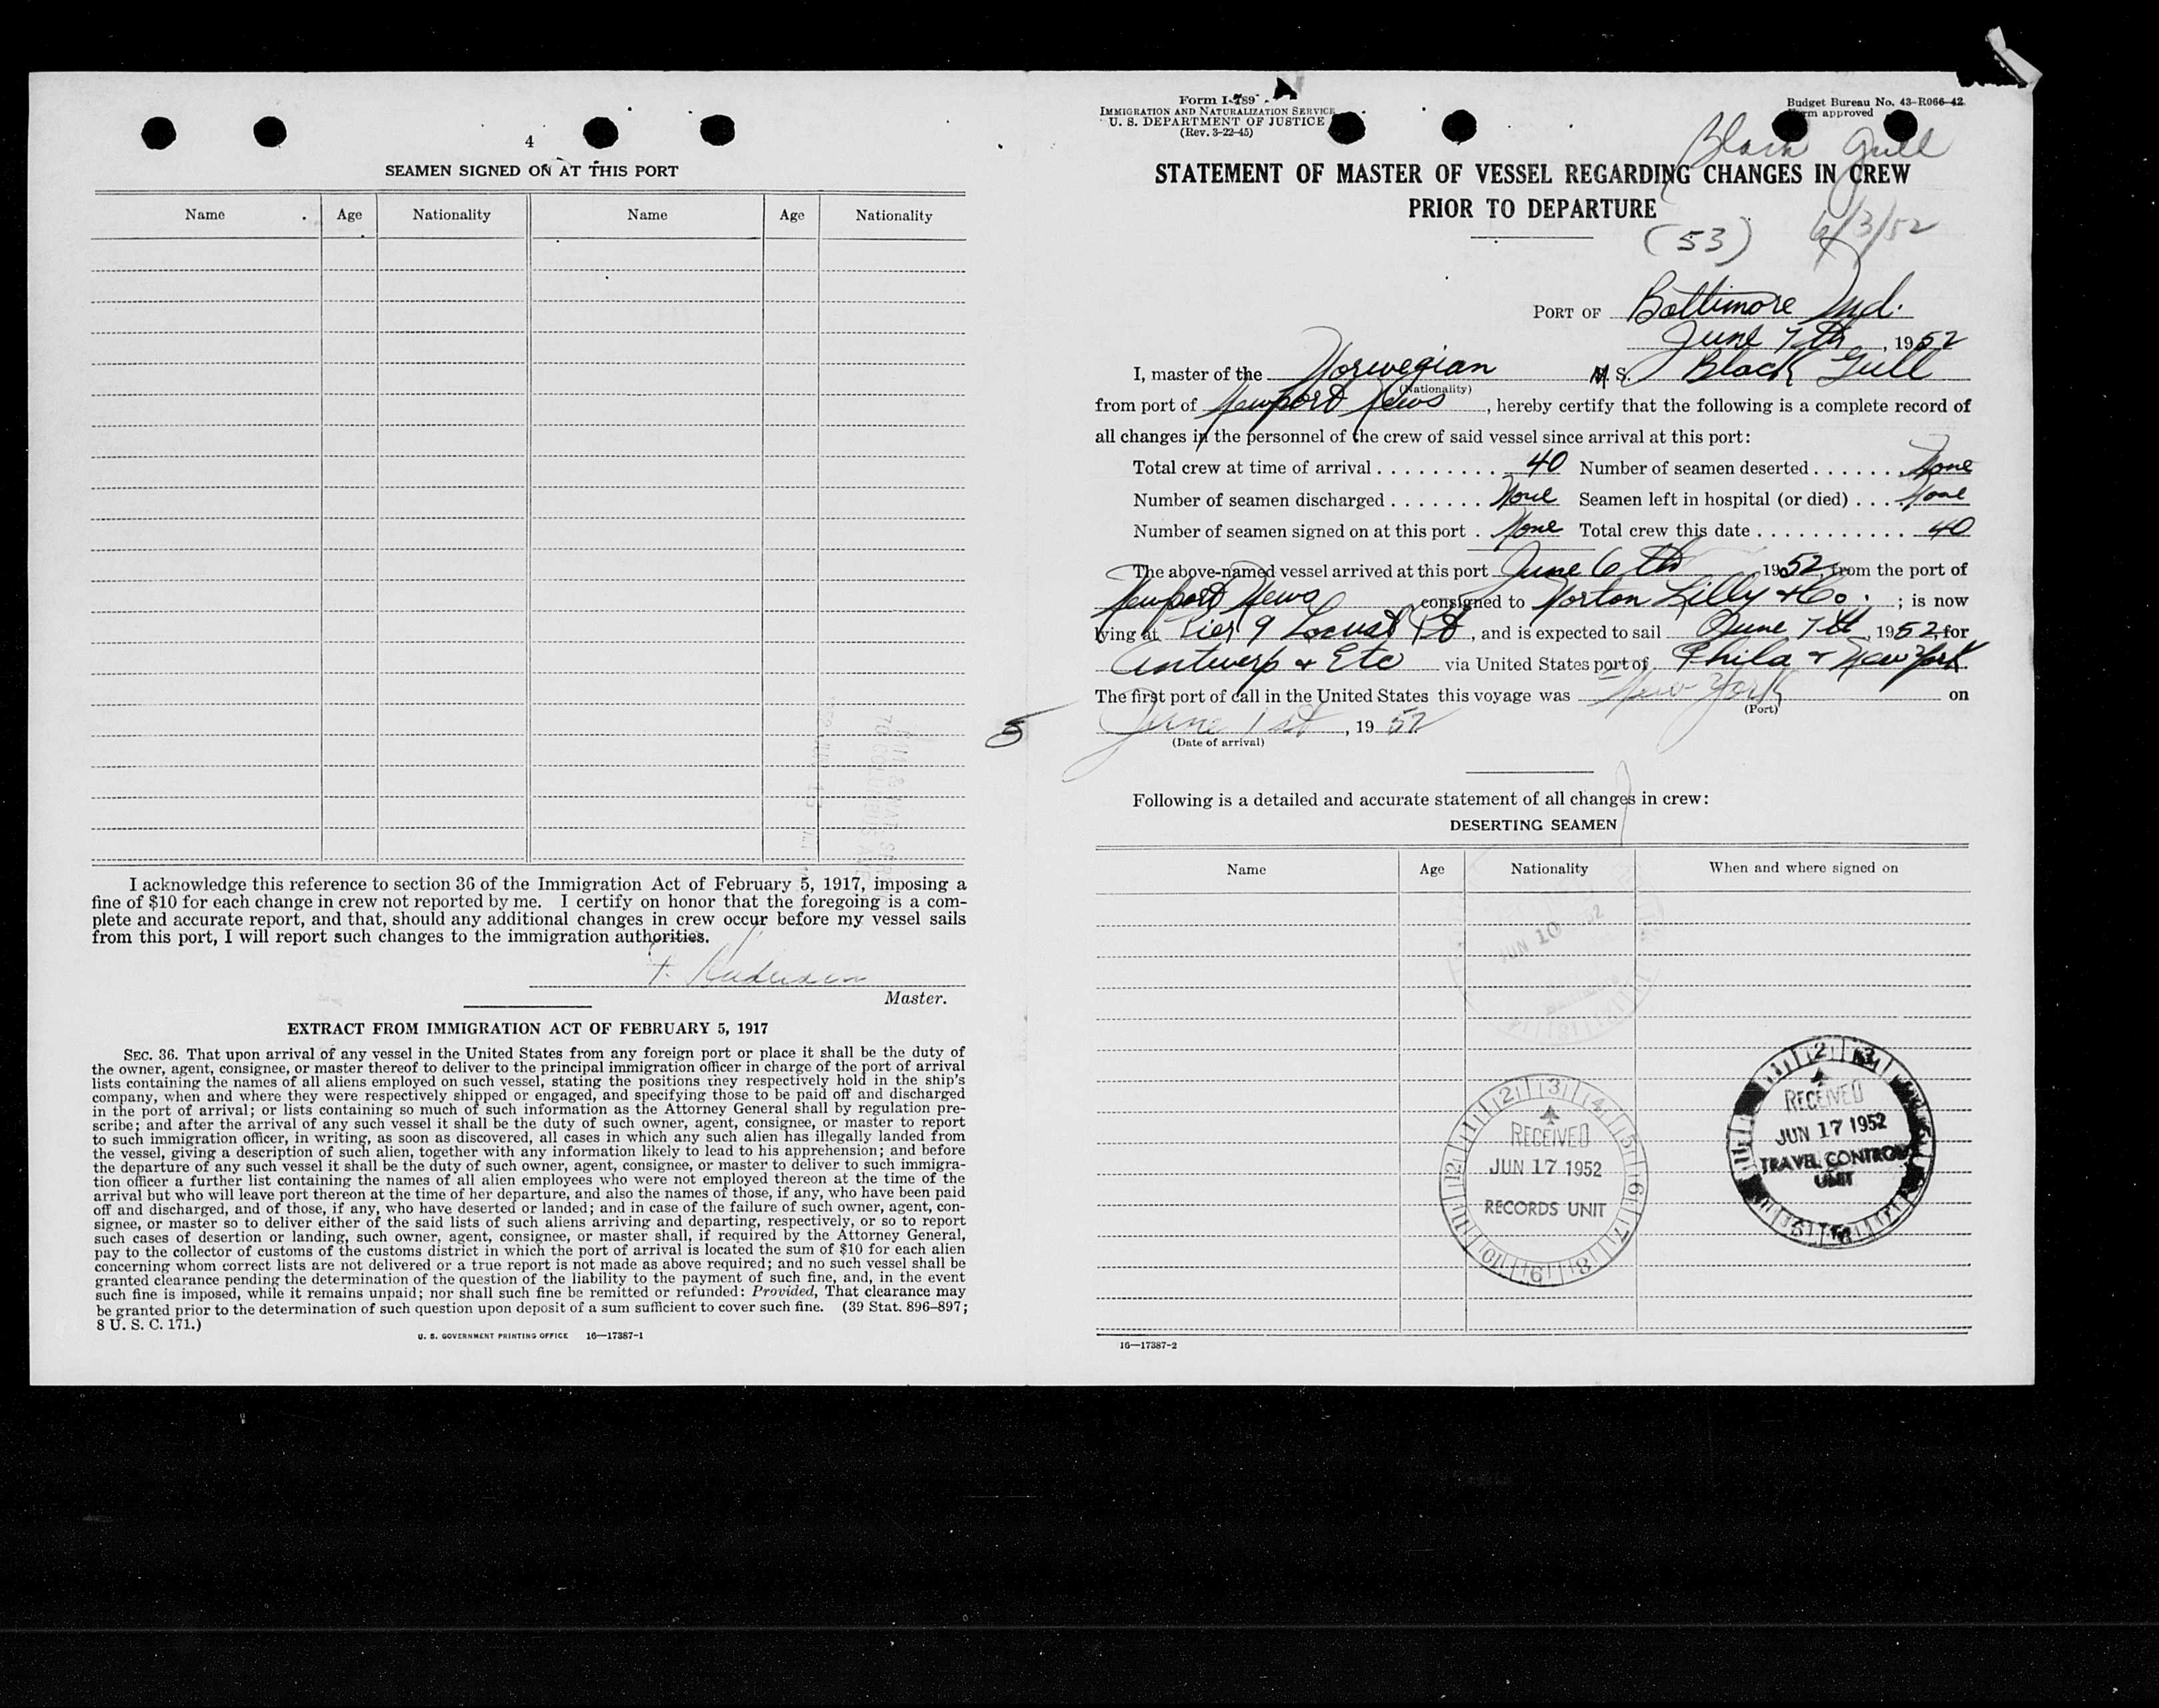 4
SEAMEN SIGNED ON AT THIS PORT
Name Age Nationality Name Age Nationality
I acknowledge this reference to section 36 of the Immigration Act of February 5, 1917, imposing a
fine of $10 for each change in crew not reported by me. I certify on honor that the foregoing is a com-
plete and accurate report, and that, should any additional changes in crew occur before my vessel sails
from this port, I will report such changes to the immigration authorities.
Master.
EXTRACT FROM IMMIGRATION ACT OF FEBRUARY 5, 1917
SEC. 36. That upon arrival of any vessel in the United States from any foreign port or place it shall be the duty of
the owner, agent, consignee, or master thereof to deliver to the principal immigration officer in charge of the port of arrival
lists containing the names of all aliens employed on such vessel, stating the positions they respectively hold in the ship's
company, when and where they were respectively shipped or engaged, and specifying those to be paid off and discharged
in the port of arrival; or lists containing so much of such information as the Attorney General shall by regulation pre-
scribe; and after the arrival of any such vessel it shall be the duty of such owner, agent, consignee, or master to report
to such immigration officer, in writing, as soon as discovered, all cases in which any such alien has illegally landed from
the vessel, giving a description of such alien, together with any information likely to lead to his apprehension; and before
the departure of any such vessel it shall be the duty of such owner, agent, consignee, or master to deliver to such immigra-
tion officer a further list containing the names of all alien employees who were not employed thereon at the time of the
arrival but who will leave port thereon at the time of her departure, and also the names of those, if any, who have been paid
off and discharged, and of those, if any, who have deserted or landed; and in case of the failure of such owner, agent, con-
signee, or master so to deliver either of the said lists of such aliens arriving and departing, respectively, or so to report
such cases of desertion or landing, such owner, agent, consignee, or master shall, if required by the Attorney General,
pay to the collector of customs of the customs district in which the port of arrival is located the sum of $10 for each alien
concerning whom correct lists are not delivered or a true report is not made as above required; and no such vessel shall be
granted clearance pending the determination of the question of the liability to the payment of such fine, and, in the event
such fine is imposed, while it remains unpaid; nor shall such fine be remitted or refunded: Provided, That clearance may
be granted prior to the determination of such question upon deposit of a sum sufficient to cover such fine. (39 Stat. 896–897;
8 U. S. C. 171.)
U. S. GOVERNMENT PRINTING OFFICE 16—17387-1
5
Form I-489
IMMIGRATION AND NATURALIZATION SERVICE
U. S. DEPARTMENT OF JUSTICE
(Rev. 3-22-45)
Budget Bureau No. 43-R066-42
approved
Black Gull
STATEMENT OF MASTER OF VESSEL REGARDING CHANGES IN CREW
PRIOR TO DEPARTURE
(53) 6/3/52
PORT OF Baltimore Md.
June 7th, 1952
I, master of the Norwegian M. S. Black Gull
(Nationality)
from port of Newport News, hereby certify that the following is a complete record of
all changes in the personnel of the crew of said vessel since arrival at this port:
Total crew at time of arrival . . . . . . . . . . 40 Number of seamen deserted . . . . . . . None
Number of seamen discharged . . . . . . . None Seamen left in hospital (or died) . . . . None
Number of seamen signed on at this port . None Total crew this date . . . . . . . . . . . . 40
The above-named vessel arrived at this port June 6th 1952, from the port of
Newport News, consigned to Norton Lilly & Co. ; is now
lying at Pier 9 Locust Pt, and is expected to sail June 7th, 1952, for
Antwerp & Etc via United States port of Phila & New York
The first port of call in the United States this voyage was New York on
(Port)
June 1st, 1952
(Date of arrival)
Following is a detailed and accurate statement of all changes in crew:
DESERTING SEAMEN
Name Age Nationality When and where signed on
JUN 10 52
RECEIVED
JUN 17 1952
RECORDS UNIT
RECEIVED
JUN 17 1952
TRAVEL CONTROL
UNIT
16—17387-2